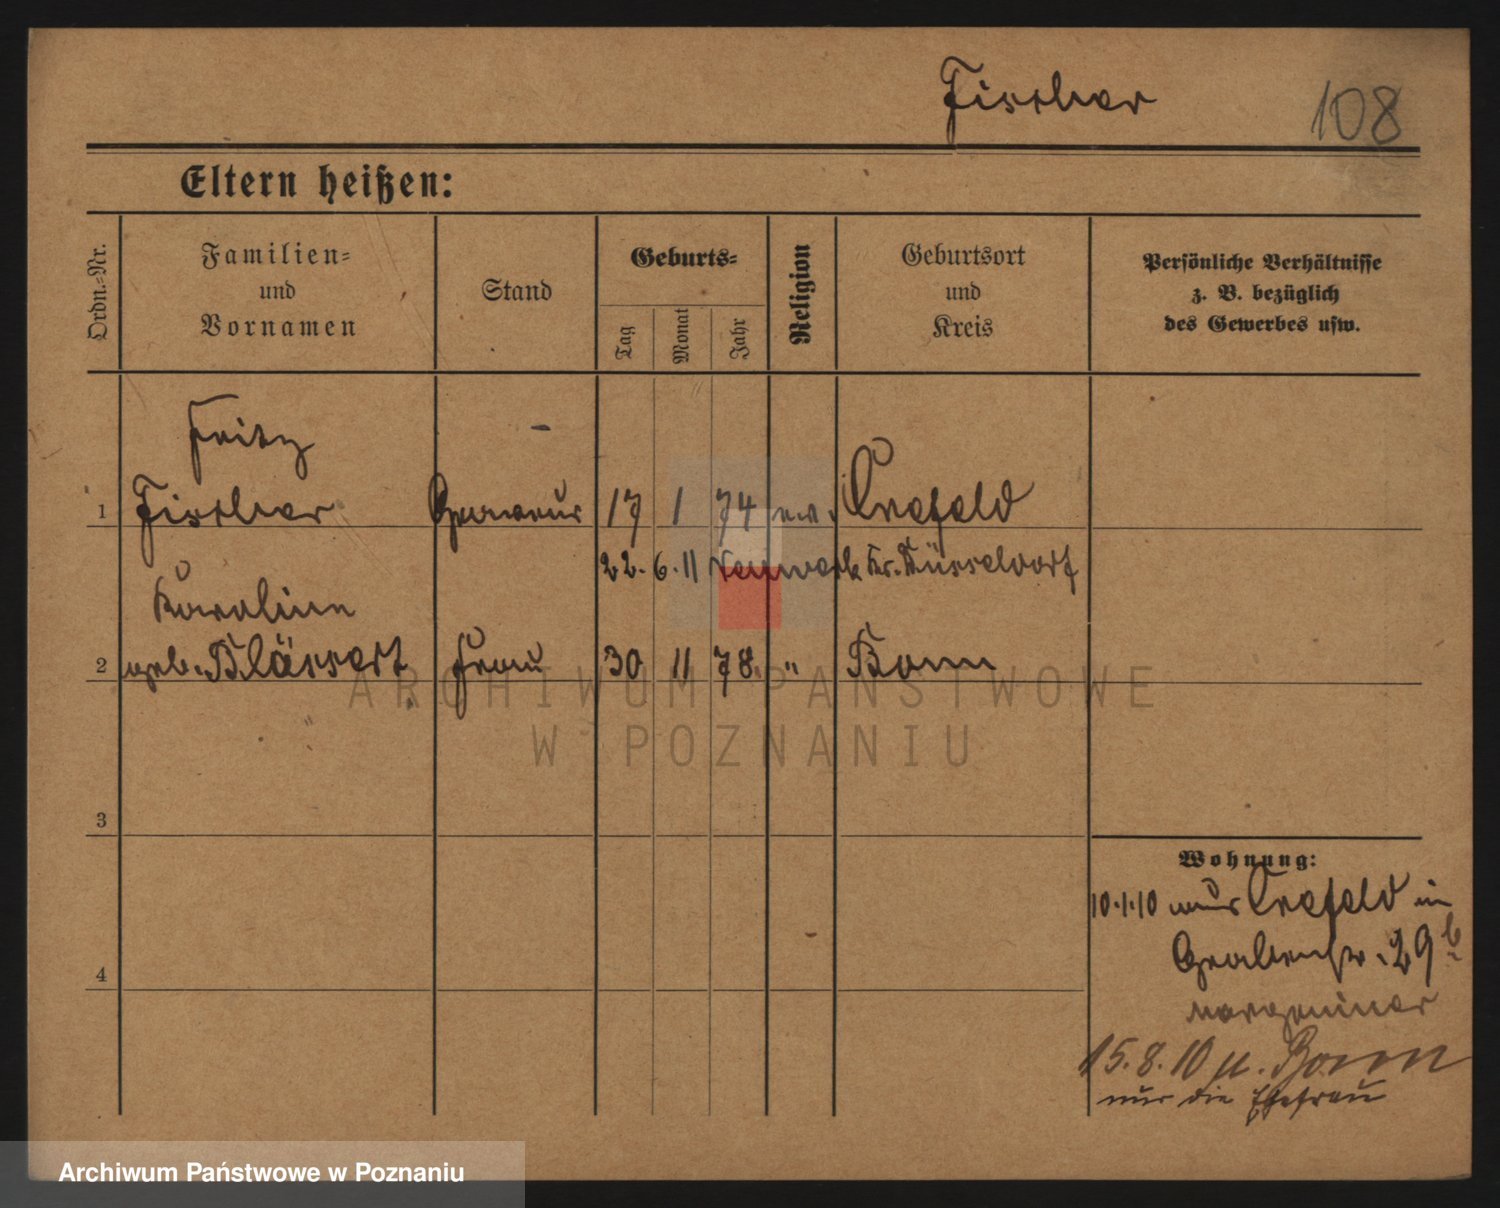 Fischer
108
Eltern heißen:
Ordn.-Nr.
Familien-
und
Vornamen
Stand
Geburts-
Tag
Monat
Jahr
Religion
Geburtsort
und
Kreis
Persönliche Verhältnisse
z. B. bezüglich
des Gewerbes usw.
Fritz
1 Fischer Graveur 17 1 74 ev. Crefeld
22. 6. 11 Kr. Düsseldorf
Karoline
2 geb. Blässert Frau 30 11 78 " Bonn
ARCHIWUM PAŃSTWOWE
W POZNANIU
3
Wohnung:
10.1.10 aus Crefeld in
Grabenstr. 29b
4
15.8.10 n. Bonn
nur die Ehefrau
Archiwum Państwowe w Poznaniu